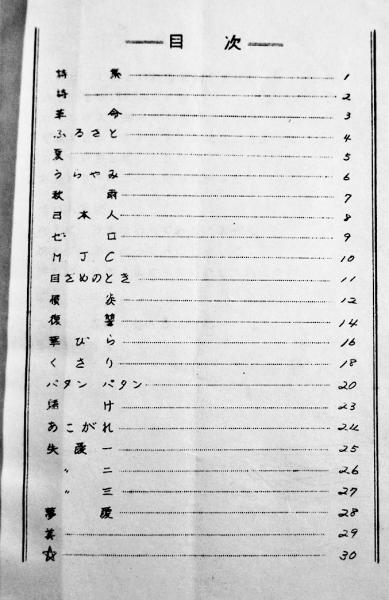 目次
詩集 1
詩 2
革命 3
ふるさと 4
夏 5
うらやみ 6
秋雨 7
日本人 8
ゼロ 9
MJC 10
目ざめのとき 11
12
復讐 14
びら 16
くさり 18
パタン パタン 20
け 23
あこがれ 24
失愛一 25
〃 二 26
〃 三 27
夢愛 28
29
☆ 30